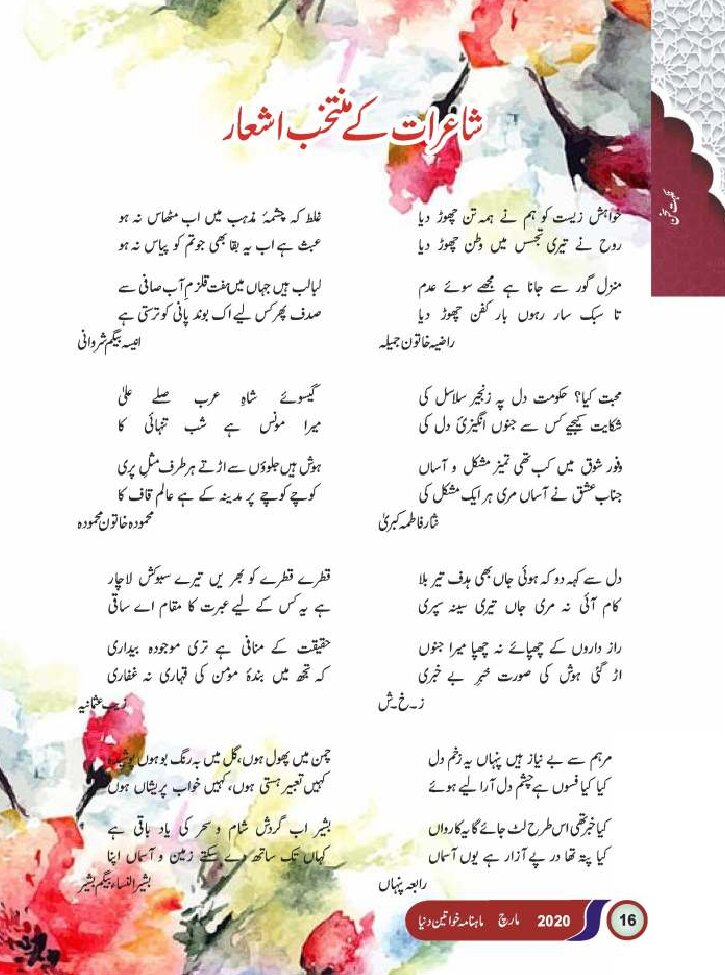 شاعرات کے منتخب اشعار
نکہت سخن
خواہش زیست کو ہم نے ہمہ تن چھوڑ دیا
روح نے تیری تجسس میں وطن چھوڑ دیا
منزل گور سے جانا ہے مجھے سوئے عدم
تا سبک سار رہوں بار کفن چھوڑ دیا
راضیہ خاتون جمیلہ
محبت کیا؟ حکومت دل پہ زنجیر سلاسل کی
شکایت کیجیے کس سے جنوں انگیزیٔ دل کی
وفور شوق میں کب تھی تمیز مشکل و آساں
جناب عشق نے آساں مری ہر ایک مشکل کی
نثار فاطمہ کبریٰ
دل سے کہہ دو کہ ہوئی جاں بھی ہدف تیر بلا
کام آئی نہ مری جاں تیری سینہ سپری
راز داروں کے چھپائے نہ چھپا میرا جنوں
اڑ گئی ہوش کی صورت خبر بے خبری
ز۔خ۔ش
مرہم سے بے نیاز ہیں پنہاں یہ زخم دل
کیا کیا فسوں ہے چشم دل آرا لیے ہوئے
کیا خبر تھی اس طرح لٹ جائے گا یہ کارواں
کیا پتہ تھا درپے آزار ہے یوں آسماں
رابعہ پنہاں
غلط کہ چشمۂ مذہب میں اب مٹھاس نہ ہو
عبث ہے اب یہ بقا بھی جو تم کو پیاس نہ ہو
لبالب ہیں جہاں میں ہفت قلزم آب صافی سے
صدف پھر کس لیے اک بوند پانی کو ترستی ہے
انیسہ بیگم شروانی
گیسوئے شاہِ عرب صلے علیٰ
میرا مونس ہے شب تنہائی کا
ہوش ہیں جلوؤں سے اڑتے ہر طرف مثل پری
کوچے کوچے پر مدینہ کے ہے عالم قاف کا
محمودہ خاتون محمودہ
قطرے قطرے کو پھریں تیرے سبوکش لاچار
ہے یہ کس کے لیے عبرت کا مقام اے ساقی
حقیقت کے منافی ہے تری موجودہ بیداری
کہ تجھ میں بندۂ مومن کی قہاری نہ غفاری
زیب عثمانیہ
چمن میں پھول ہوں، گل میں بہ رنگ بو ہوں پوشیدہ
کہیں تعبیر ہستی ہوں، کہیں خواب پریشاں ہوں
بشیر اب گردش شام و سحر کی یاد باقی ہے
کہاں تک ساتھ دے سکتے زمین و آسماں اپنا
بشیر النساء بیگم بشیر
ماہنامہ خواتین دنیا مارچ 2020 16